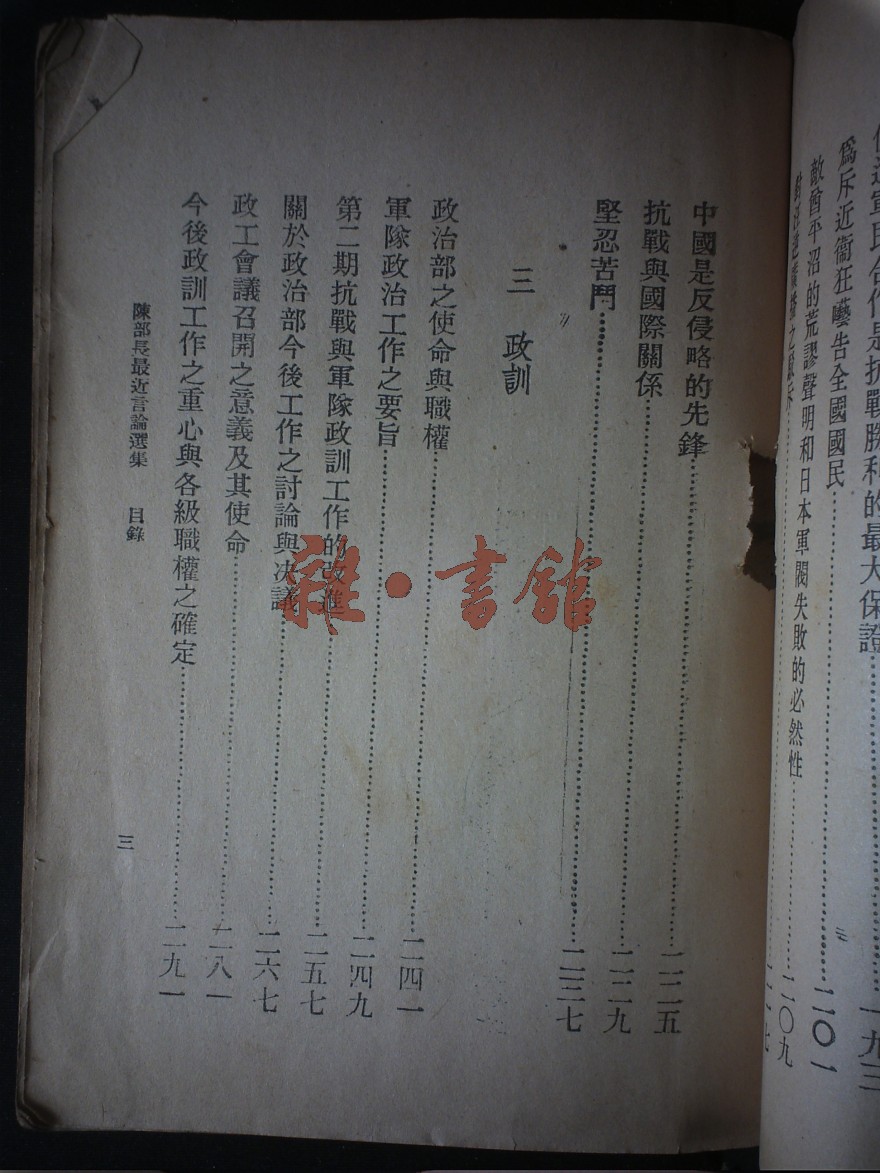 軍民合作是抗戰勝利的最大保證 一九三
爲斥近衞狂囈告全國國民 二〇一
敵酋平沼的荒謬聲明和日本軍閥失敗的必然性 二〇九
中國是反侵略的先鋒 二二五
抗戰與國際關係 二二九
堅忍苦鬥 二三七
三 政訓
政治部之使命與職權 二四一
軍隊政治工作之要旨 二四九
第二期抗戰與軍隊政訓工作的改進 二五七
關於政治部今後工作之討論與決議 二六七
政工會議召開之意義及其使命 二八一
今後政訓工作之重心與各級職權之確定 二九一
陳部長最近言論選集 目錄
三
雜·書館